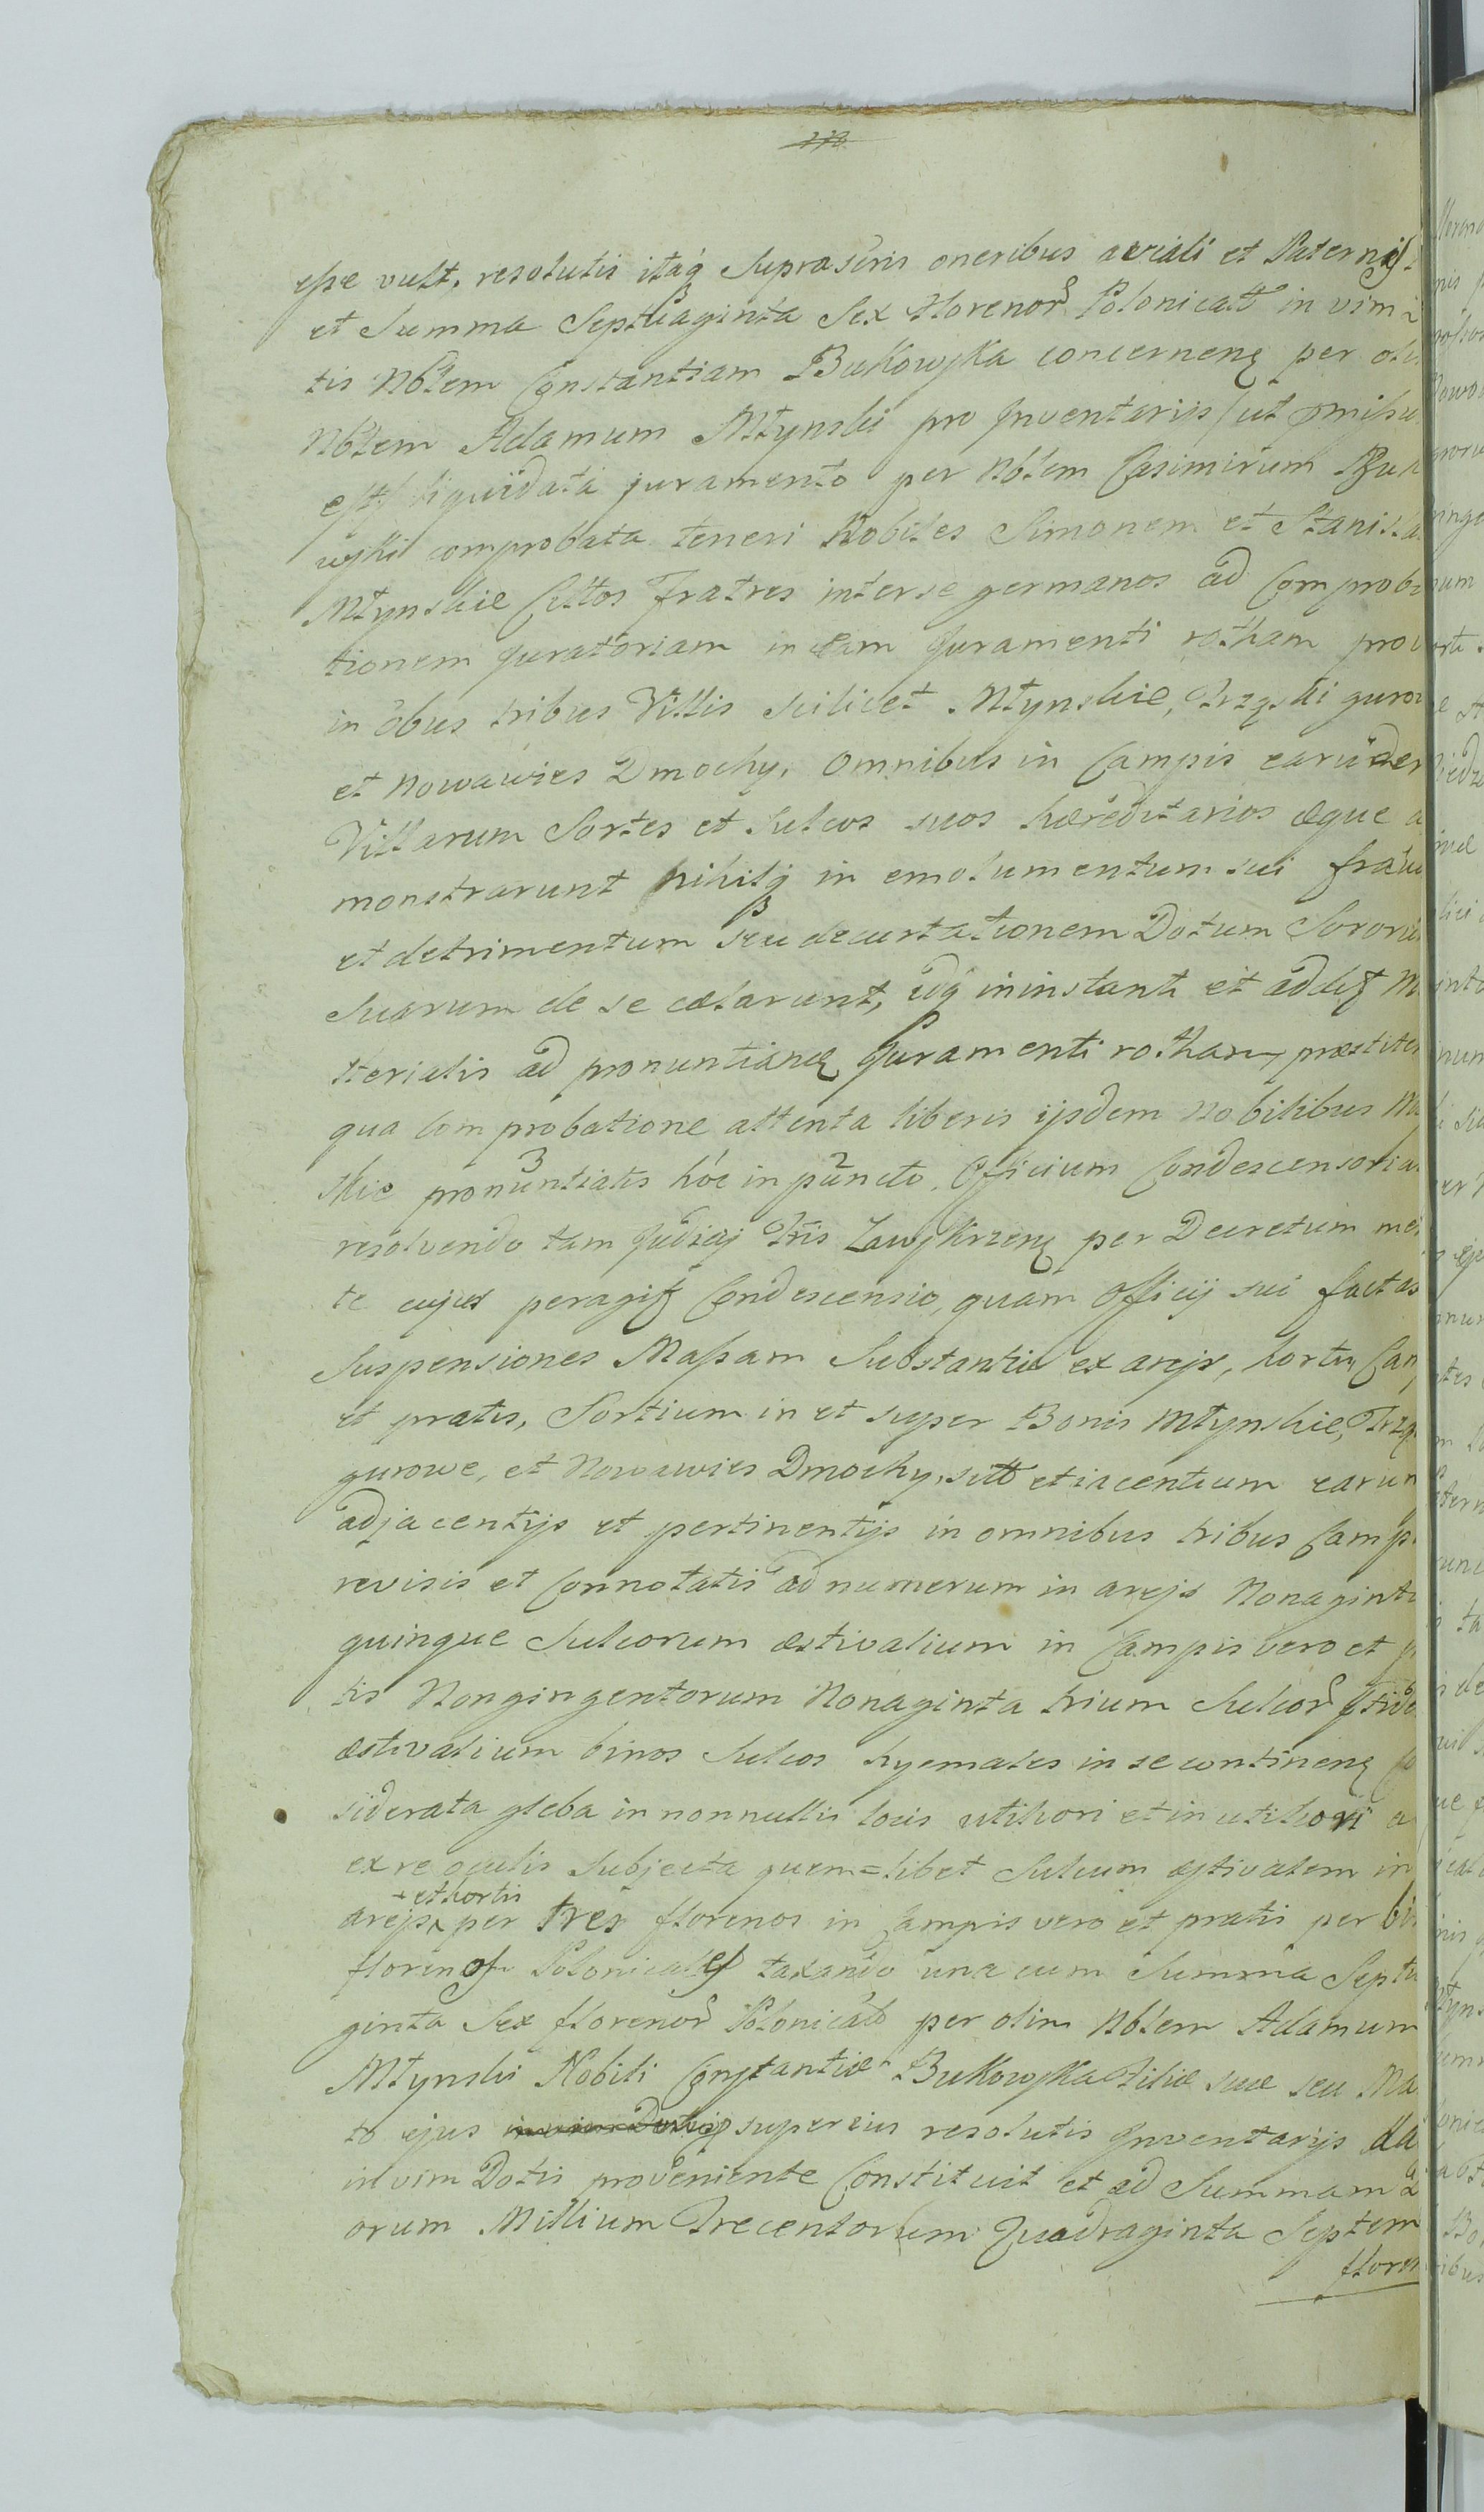 esse vult, resolutis itaq suprascris oneribus avriali et Paternis
et Summa Septuaginta Sex Florenor Polonicall in vim
tis Nblem Constantiam Bukowska concernen per oli
Nblem Adamum Młynski pro Inventarijs / ut pmissu
est / liquidata juramento per Nblem Casimirum Buk
wski comprobata teneri Nobiles Simonem et Stanisla
Młynskie Cittos Fratres interse germanos ad Comproba
tionem juratoriam in eam Juramenti rotham prou
in obus tribus Villis scilicet Młynskie, Trząski gurow
et Nowawies Dmochy, Omnibus in Campis earunden
Villarum Sortes et Sulcos suos hæreditarios æque a
monstrarunt nihilq in emolumentum sui frau
et detrimentum seu decurtationem Dotum Sororu
suarum de se cælarunt, idq ininstanti et addit M
sterialis ad pronuntian Juramenti rotham præstiter
qua Comprobatione attenta liberis ijsdem Nobilibus Mł
skie pronuntiatis hoc in puncto, Officium Condescensoria
resolvendo tam Judicij Tris Zawskrzen per Decretum me
te cujus peragit Condescensio, quam Officij sui factas
Suspensiones Massam Substantiæ ex areis, hortis Cam
et pratis, Sortium in et super Bonis Młynskie, Trzą
gurowe, et Nowawies Dmochy, sitt et iacentium earun
adjacentijs et pertinentijs in omnibus tribus Camp
revisis et Connotatis ad numerum in arejs Nonaginta
quinque Sulcorum æstivalium in Campis vero et p
tis Nongingentorum Nonaginta trium Sulcor
æstivalium binos Sulcos hyemales in se continen
siderata gleba in nonnullis locis utiliori et inutiliori a
ex re oculis Subjecta quem=libet Sulcum æstivalem in
+ et hortis
arejs per tres florenos in Campis vero et pratis per bi
florenos Polonicales taxando una cum Summa Septu
ginta Sex florenor Polonicall per olim Nblem Adamum
Młynski Nobili Constantiæ Bukowska Filiæ suæ seu Ma
to ejus in vim Dotis superius resolutis Inventarijs da
in vim Dotis proveniente Constituit et ad Summam
orum Millium Trecentorum Quadraginta Septem
floren